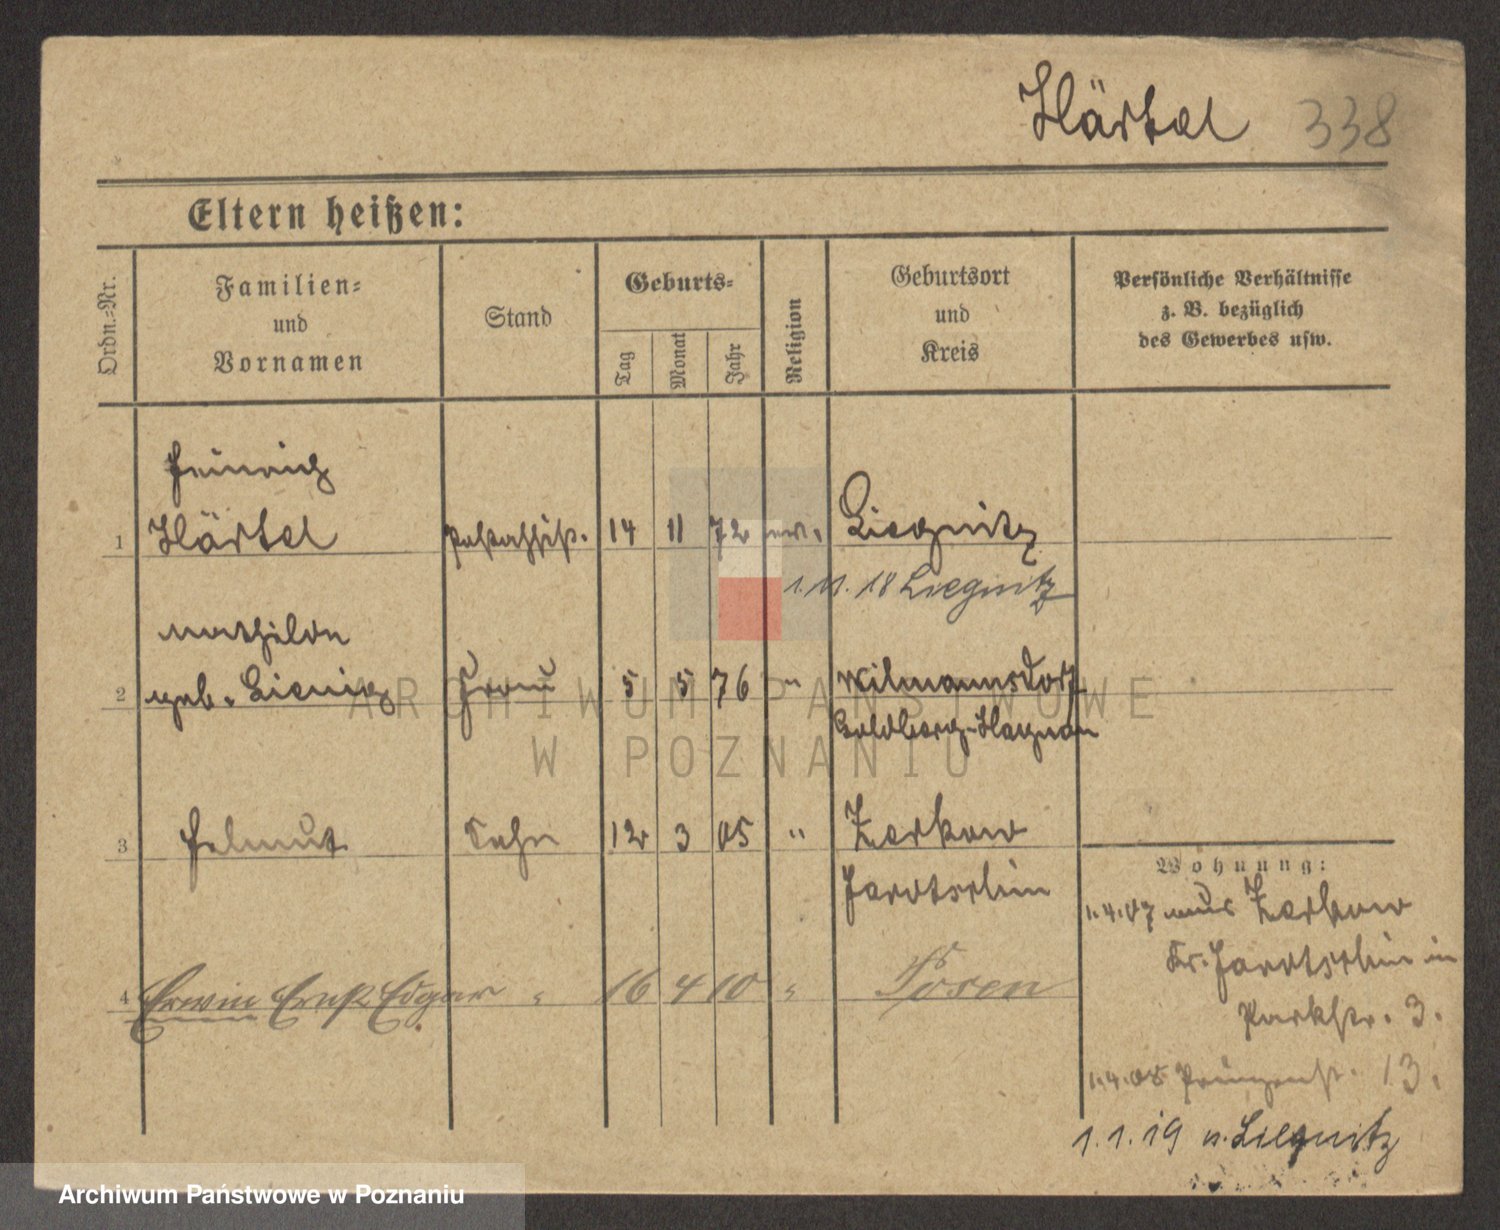 Härtel 338
Eltern heißen:
Ordn.-Nr.
Familien-
und
Vornamen
Stand
Geburts-
Tag
Monat
Jahr
Religion
Geburtsort
und
Kreis
Persönliche Verhältnisse
z. B. bezüglich
des Gewerbes usw.
Heinrich
1 Härtel Postassist. 14 11 72 ev. Liegnitz
1.11.18 Liegnitz
Mathilde
2 geb. Frau 5 5 76 " Wilmannsdorf
Goldberg-Haynau
3 Helmut Sohn 12 3 05 " Zerkow
Jarotschin
4 Erwin Ernst Edgar " 16 4 10 " Posen
Wohnung:
1.4.07 aus Zerkow
Kr. Jarotschin in
Parkstr. 3.
1.4.08 Prinzenst. 13.
1.1.19 n. Liegnitz
ARCHIWUM PAŃSTWOWE
W POZNANIU
Archiwum Państwowe w Poznaniu